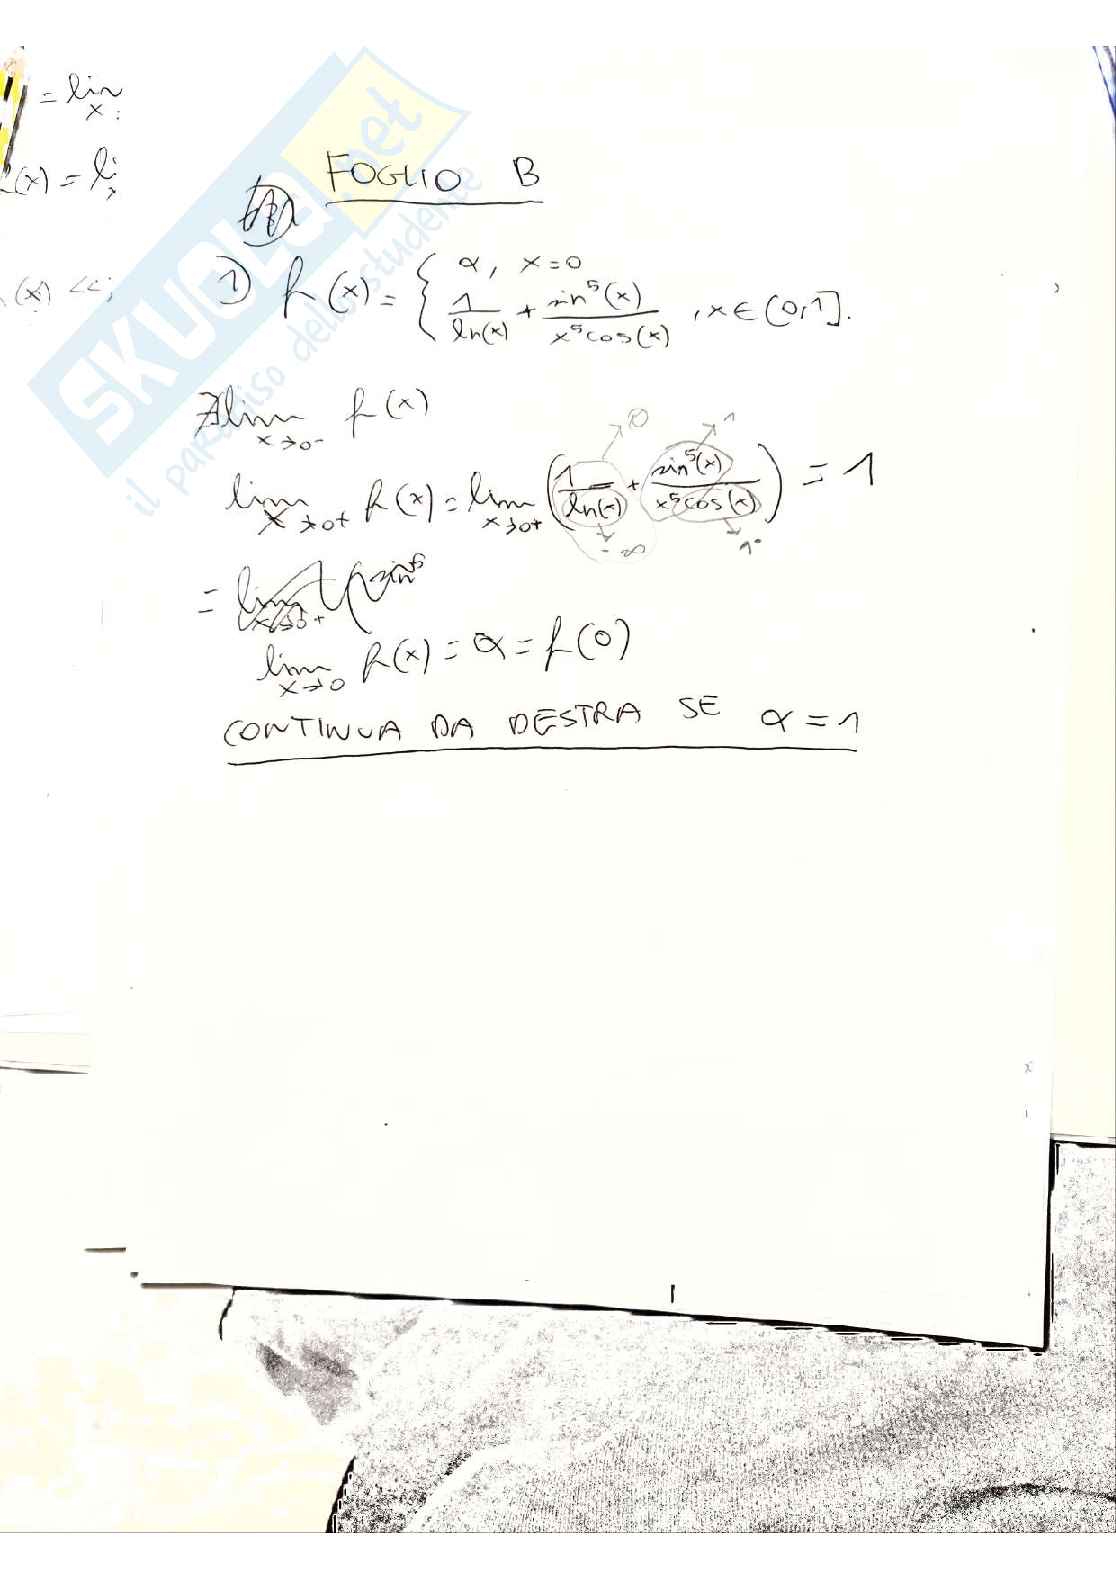 = lim
x
(x) = li
x
(x) <<
SKUOLA.net
il paradiso dello studente
FOGLIO B
1) f(x) = { α, x=0
1/ln(x) + sin⁵(x)/x⁵cos(x) , x ∈ (0,1].
∄ lim x→0⁻ f(x)
0 1
lim x→0+ f(x) = lim x→0+ (1/ln(x) + sin⁵(x)/x⁵cos(x)) = 1
-∞ 1
=
lim x→0 f(x) = α = f(0)
CONTINUA DA DESTRA SE α = 1